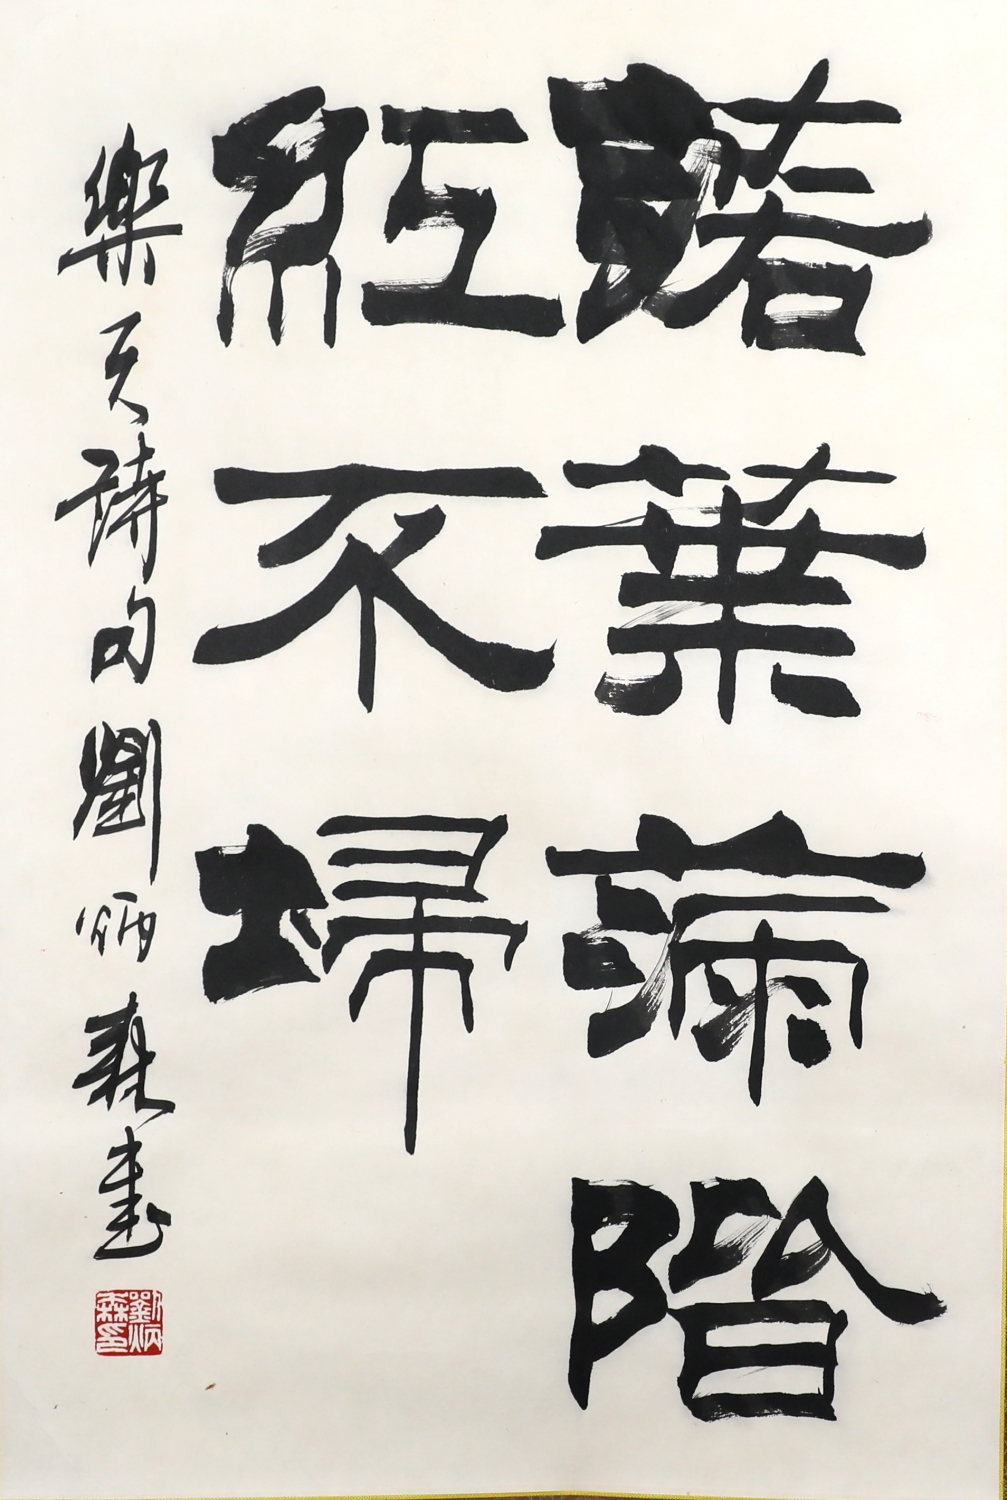 落葉滿階
紅不埽
樂天詩句劉炳森書
劉炳
森印